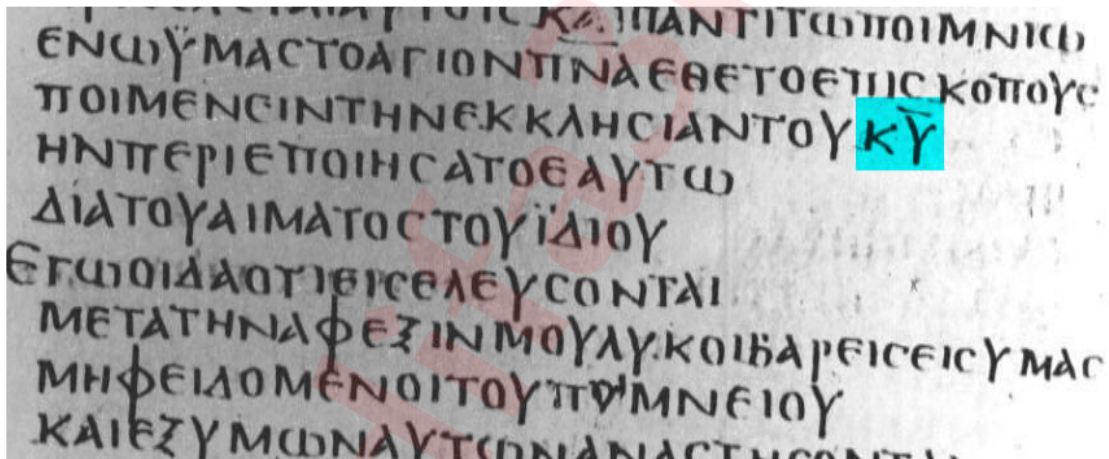 ΠΑΝΤΙΤΩΠΟΙΜΝΙΩ
ΕΝΩΫΜΑCΤΟΑΓΙΟΝΠ̅Ν̅Α̅ΕΘΕΤΟΕΠΙCΚΟΠΟΥC
ΠΟΙΜΕΝΕΙΝΤΗΝΕΚΚΛΗCΙΑΝΤΟΥΚ̅Υ̅
ΗΝΠΕΡΙΕΠΟΙΗCΑΤΟΕΑΥΤΩ
ΔΙΑΤΟΥΑΙΜΑΤΟCΤΟΥΪΔΙΟΥ
ΕΓΩΟΙΔΑΟΤΙΕΙCΕΛΕΥCΟΝΤΑΙ
ΜΕΤΑΤΗΝΑΦΕΞΙΝΜΟΥΛΥΚΟΙΒΑΡΕΙCΕΙCΥΜΑC
ΜΗΦΕΙΔΟΜΕΝΟΙΤΟΥΠΟΙΜΝΕΙΟΥ
ΚΑΙΕΞΥΜΩΝΑΥΤΩΝΑΝΑCΤΗCΟΝΤΑΙ